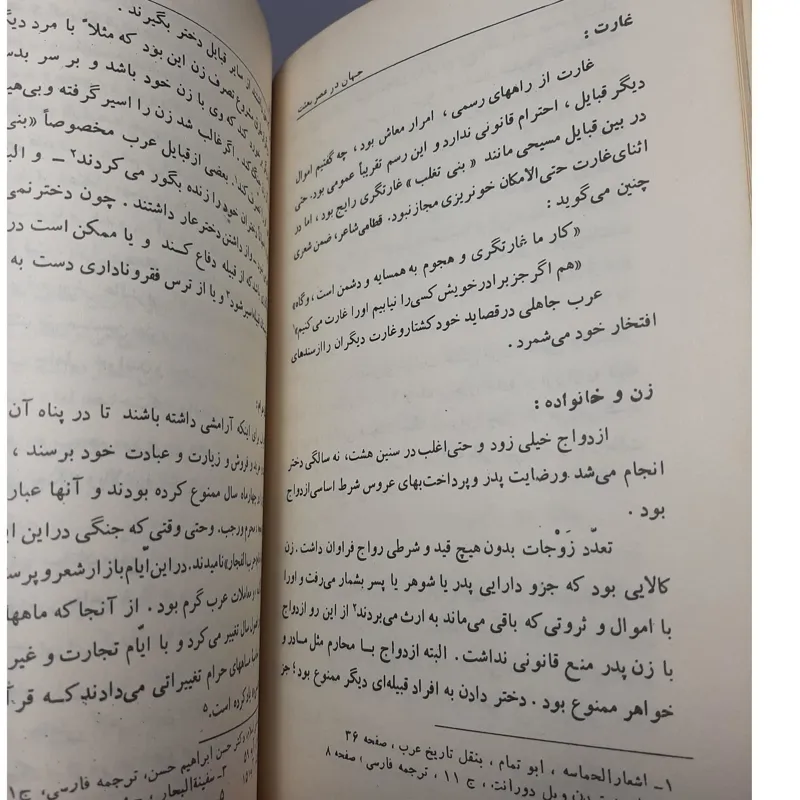 جهان در عصر بعثت
غارت :
غارت از راههای رسمی ، امرار معاش بود ، چه گفتیم اموال
دیگر قبایل ، احترام قانونی ندارد و این رسم تقریباً عمومی بود. حتی
در بین قبایل مسیحی مانند « بنی تغلب » غارتگری رایج بود ، اما در
اثنای غارت حتی‌الامکان خونریزی مجاز نبود. قطامی شاعر، ضمن شعری
چنین می‌گوید :
«کار ما غارتگری و هجوم به همسایه و دشمن است ، وگاه»
«هم اگر جز برادر خویش کسی را نیابیم او را غارت می‌کنیم»¹
عرب جاهلی در قصاید خود کشتار و غارت دیگران را از سندهای
افتخار خود می‌شمرد .
زن و خانواده :
ازدواج خیلی زود و حتی اغلب در سنین هشت، نه سالگی دختر
انجام می‌شد ورضایت پدر و پرداخت‌بهای عروس شرط اساسی ازدواج
بود .
تعدّد زَوْجات بدون هیچ قید و شرطی رواج فراوان داشت . زن
کالایی بود که جزو دارایی پدر یا شوهر یا پسر بشمار می‌رفت و اورا
با اموال و ثروتی که باقی می‌ماند به ارث می‌بردند² از این رو ازدواج
با زن پدر منع قانونی نداشت . البته ازدواج بسا محارم مثل مادر و
خواهر ممنوع بود . دختر دادن به افراد قبیله‌ای دیگر ممنوع بود ؛ جز
۱- اشعارالحماسه ، ابو تمام ، بنقل تاریخ عرب ، صفحه ۳۶
ویل دورانت ، ج ۱۱ ، ترجمه فارسی ؛ صفحه ۸
از سایر قبایل دختر بگیرند .
تصرف زن این بود که مثلاً با مرد دیگ
کند که وی با زن خود باشد و بر سر بدس
اگر غالب شد زن را اسیر گرفته و بی‌هی
بعضی از قبایل عرب مخصوصاً «بنی
خود را زنده بگور می کردند² - و الب
از داشتن دختر عار داشتند . چون دختر نمی
که از قبیله دفاع کند و یا ممکن است در
شود³ و یا از ترس فقر و ناداری دست به
اینکه آرامشی داشته باشند تا در پناه آن
و فروش و زیارت و عبادت خود برسند ،
سال ممنوع کرده بودند و آنها عبار
محرم و رجب. وحتی وقتی که جنگی در این ای
نامیدند. در این ایّام بازار شعر و پرس
معاملات عرب گرم بود . از آنجا که ماهها
سال تغییر می‌کرد و با ایّام تجارت و غیر
ماههای حرام تغییراتی می‌دادند که قرآ
کرده است.⁵
دکتر حسن ابراهیم حسن، ترجمه فارسی، ج۱
سفینة‌البحار، ج